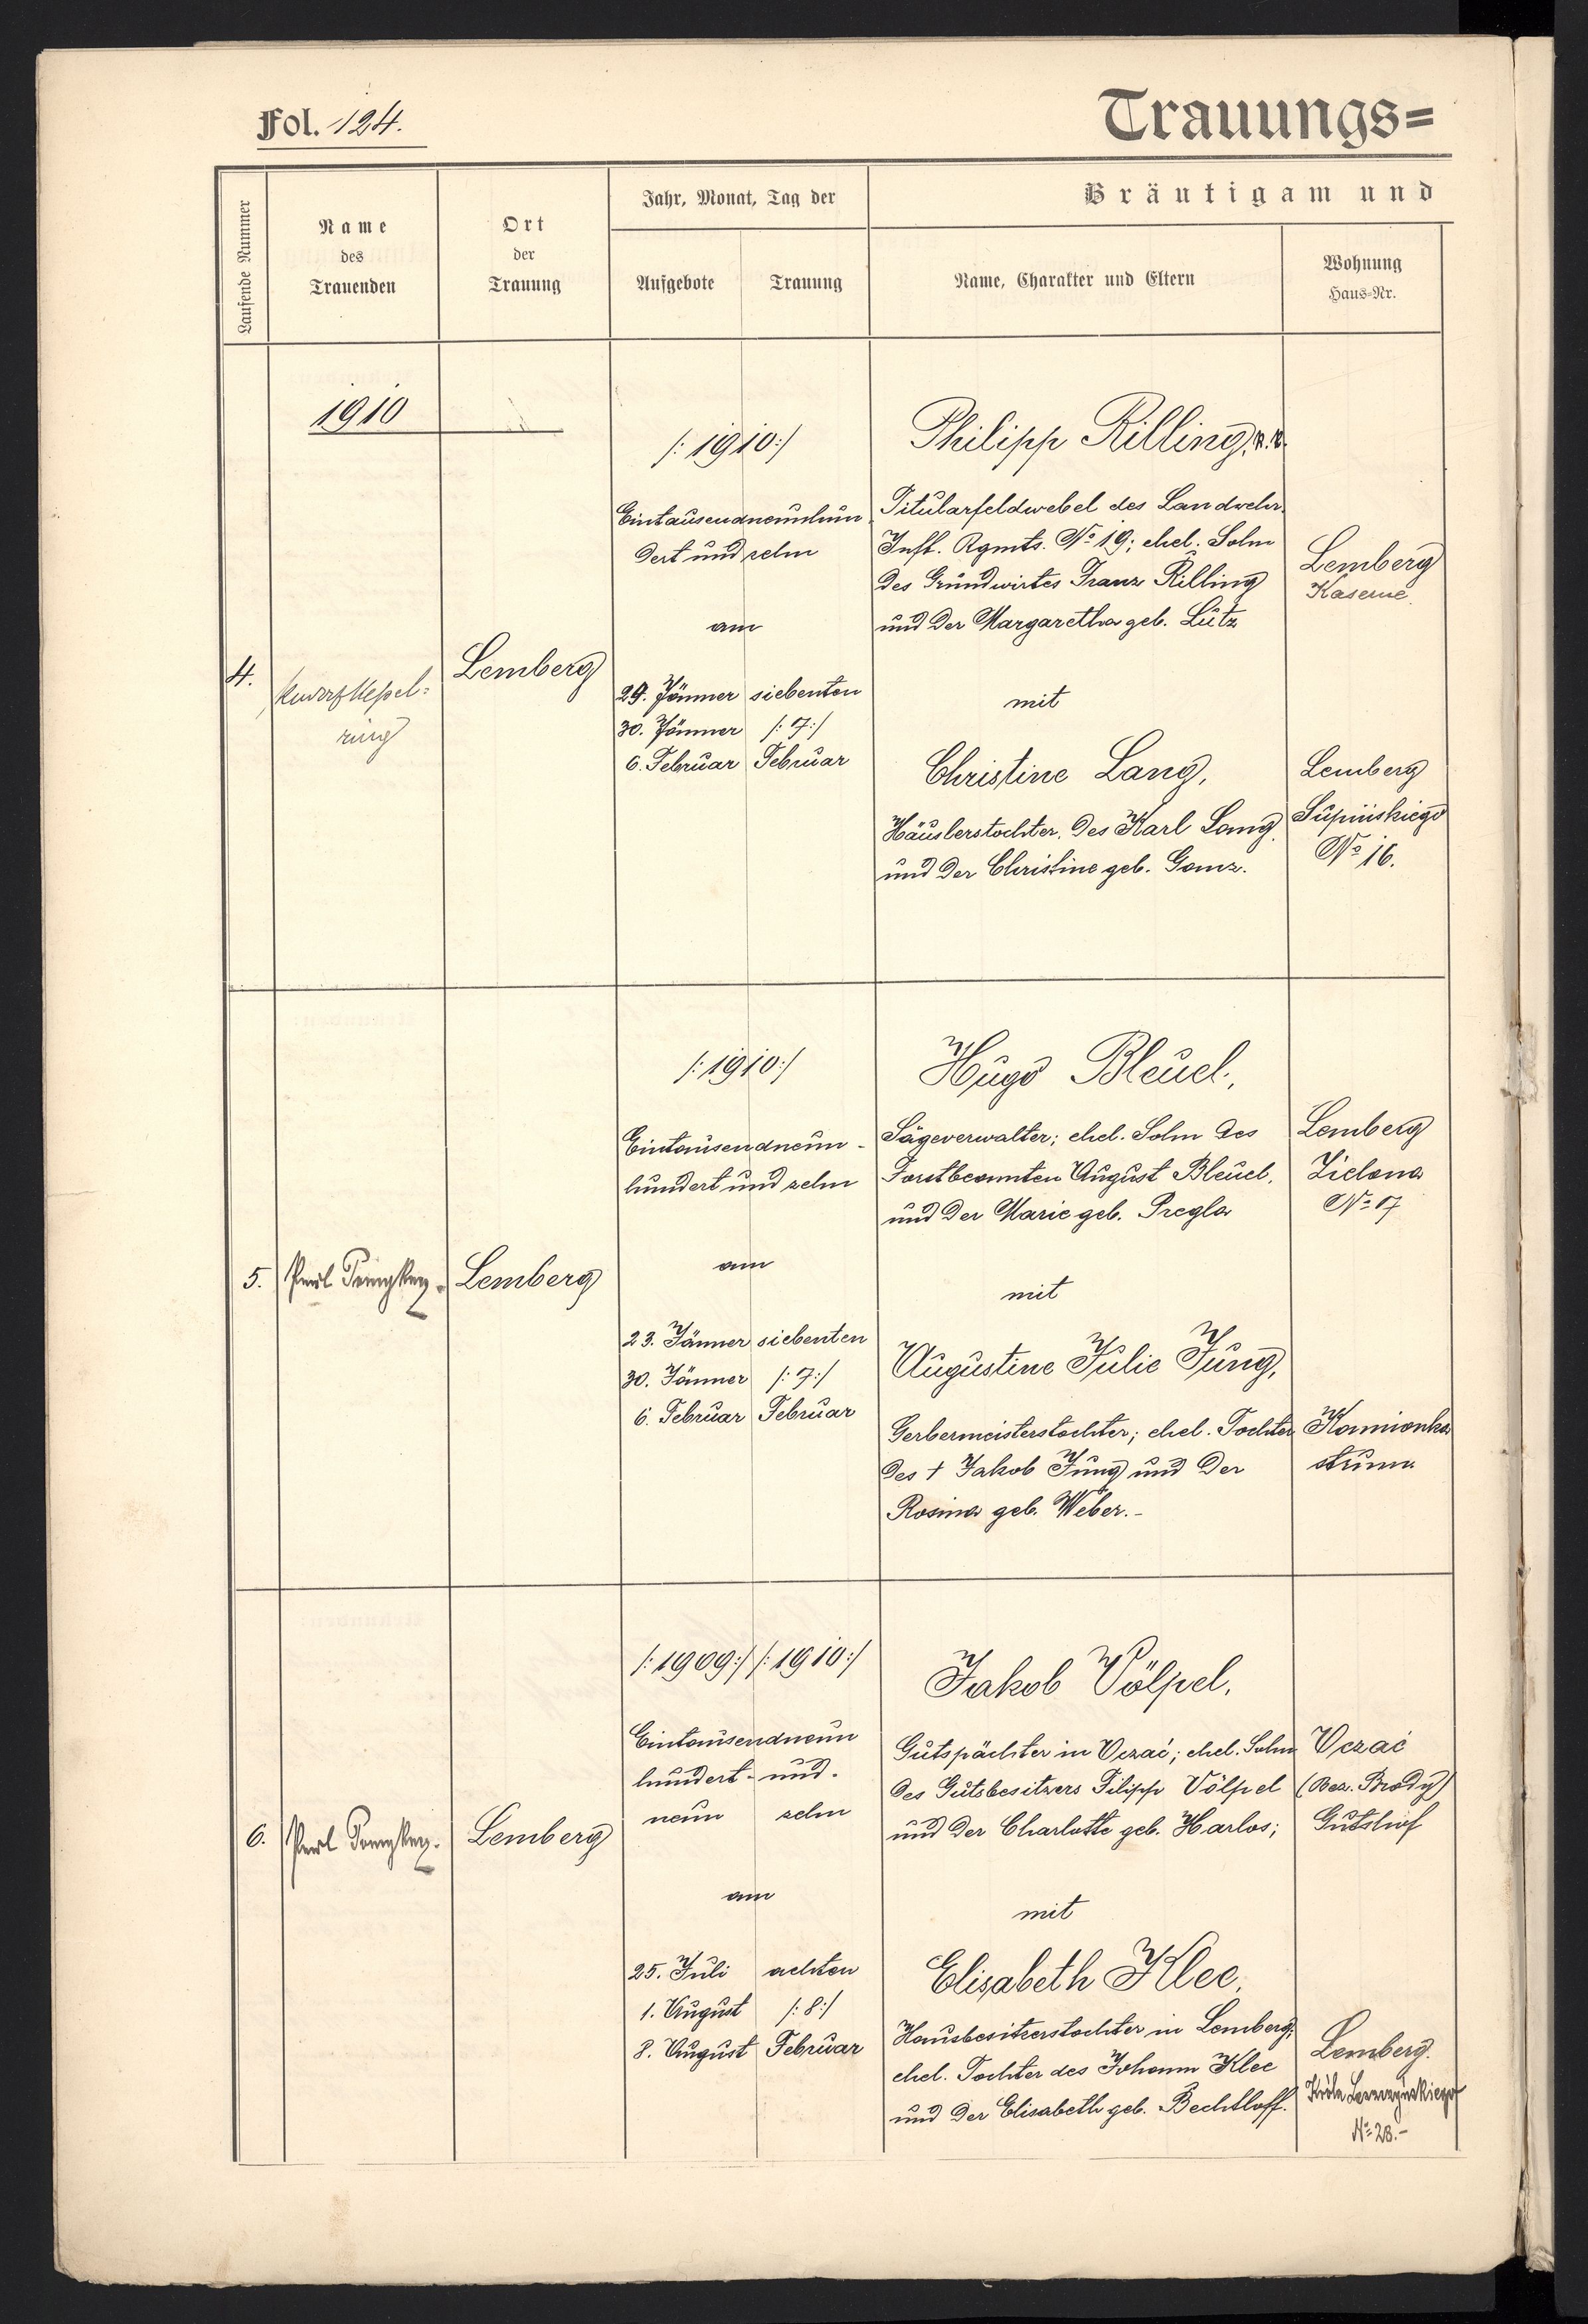 Fol. 124.
Trauungs=
Laufende Nummer
Name
des
Trauenden
Ort
der
Trauung
Jahr, Monat, Tag der
Aufgebote
Trauung
Bräutigam und
Name, Charakter und Eltern
Wohnung
Haus-Nr.
1910
4.
ring
Lemberg
/: 1910:/
Eintausendneunhun
dert und zehn
am
siebenten
30. Jänner /: 7:/
6. Februar Februar
Philipp Rilling,
Titularfeldwebel des Landwehr
Inft. Rgmts. No 19; ehel. Sohn
des Grundwirtes Franz Rilling
und der Margaretha geb. Lutz
mit
Christine Lang,
Häuslerstochter, des Karl Lang
und der Christine geb. Ganz.
Lemberg
Kaserne
Lemberg
Supińskiego
No 16.
5.
Lemberg
/: 1910:/
Eintausendneun-
hundert und zehn
am
23. Jänner siebenten
30. Jänner /: 7:/
6. Februar Februar
Hugo Bleuel,
Sägeverwalter; ehel. Sohn des
Forstbeamten August Bleuel,
und der Marie geb. Pregla
mit
Augustine Julie Jung,
Gerbermeisterstochter; ehel. Tochter
des † Jakob Jung und der
Rosina geb. Weber.-
Lemberg
Zielona
No 17
Kamionka
strum.
6.
Lemberg
/: 1909:/ /: 1910:/
Eintausendneun
hundert- und-
neun zehn
am
25. Juli achten
1. August /: 8:/
8. August Februar
Jakob Völpel,
Gutspächter in ; ehel. Sohn
des Gutsbesitzers Filipp Völpel
und der Charlotte geb. Harlos;
mit
Elisabeth Klee,
Hausbesitzerstochter in Lemberg,
ehel. Tochter des Johann Klee
und der Elisabeth geb. Bechtloff.
(Bez. Brody)
Gutshof
Lemberg.
No 28.-